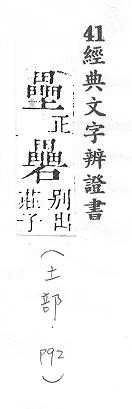 41經典文字辨證書
壘正
礨別出莊子
(土部. P92)